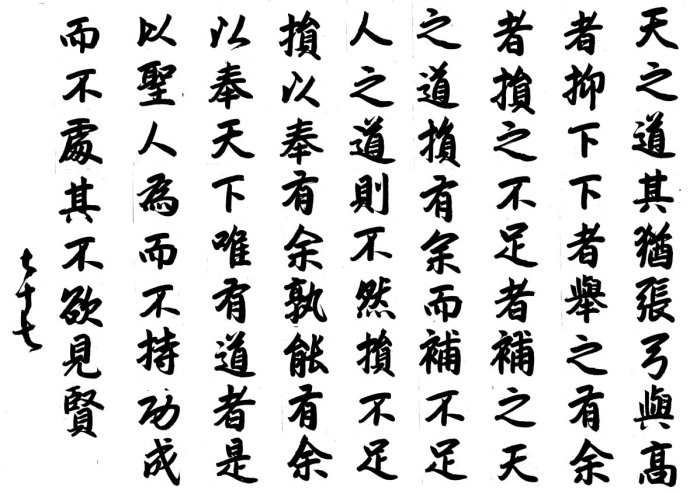 天之道其猶張弓與高
者抑下下者舉之有余
者損之不足者補之天
之道損有余而補不足
人之道則不然損不足
損以奉有余孰能有余
以奉天下唯有道者是
以聖人為而不持功成
而不處其不欲見賢
七十七